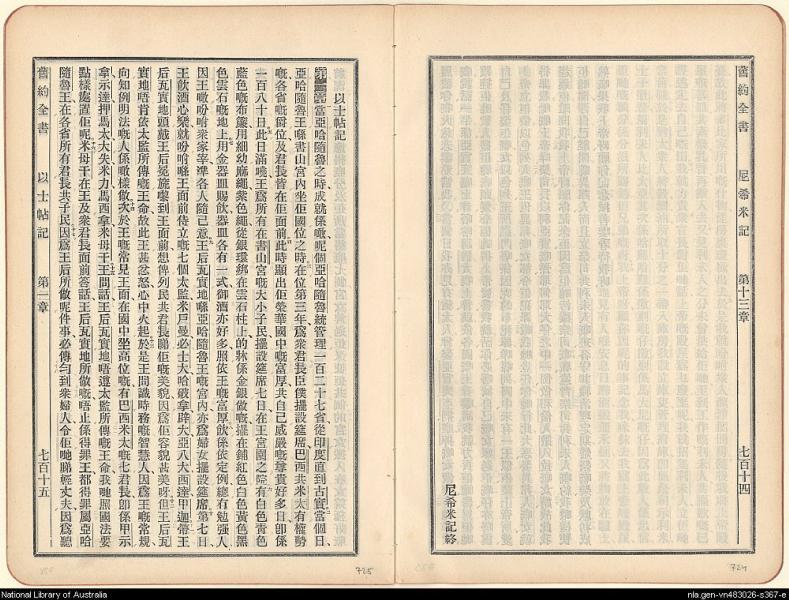 舊約全書 尼希米記 第十三章 七百十四
尼希米記終
724
以士帖記
當亞哈隨魯之時成就係噉呢個亞哈隨魯統管理一百二十七省從印度直到古實當個日、
亞哈隨魯王喺書山宮內坐佢國位之時在位第三年爲衆君長臣僕擺設筵席巴西共米太有權勢
嘅各省嘅爵位及君長皆在佢面前此時顯出佢榮華國中嘅富厚共自己威嚴嘅尊貴好多日卽係
一百八十日此日滿喺王爲所有在書山宮嘅大小子民擺設筵席七日在王宮園之院有白色靑色
藍色嘅布簾用細幼麻繩紫色繩從銀環綁在雲石柱上的牀係金銀做嘅擺在鋪紅色白色黃色黑
色雲石嘅地上用金器皿賜飲器皿各有一式御酒亦好多照依王嘅富厚飲係依定例總冇勉强人
因王噉吩咐衆家宰準各人隨己意王后瓦實地喺亞哈隨魯王嘅宮內亦爲婦女擺設筵席第七日、
王飲酒心樂就吩咐喺王面前侍立嘅七個太監米戶曼必士大哈破拿辟大亞八大西達甲迦帶王
后瓦實地頭戴王后冕旒嚟到王面前想俾列民共君長睇佢嘅美貌因爲佢容貌甚美呀但王后瓦
實地唔肯依太監所傳嘅王命故此王甚忿怒心中火起於是王問識時務嘅智慧人因爲王嘅常規
向知例明法嘅人係噉樣做次於王嘅常見王面在國中坐高位嘅有巴西米太嘅七君長卽係甲示
拿示達押馬太大失米力馬西拿米母干王問話王后瓦實地唔遵太監所傳嘅王命我哋照國法要
點樣處置佢呢米母干在王及衆君長面前答話王后瓦實地所做嘅唔止係得罪王都得罪屬亞哈
隨魯王在各省所有君長共子民因爲王后所做呢件事必傳勻到衆婦人令佢哋睇輕丈夫因爲聽
舊約全書 以士帖記 第一章 七百十五
725
National Library of Australia
nla.gen-vn483026-s367-e